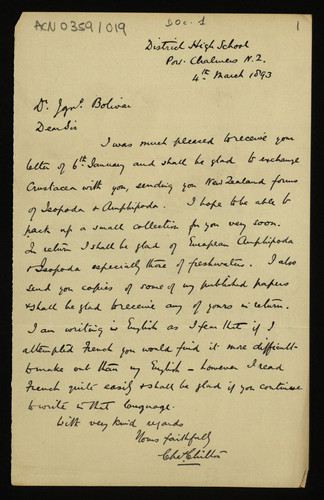 ACN0359/019
Doc. 1
1
District High School
Port Chalmers N.Z.
4th March 1893
Dr. Ignº. Bolivar
Dear Sir
I was much pleased to receive your
letter of 6th January and shall be glad to exchange
Crustacea with you, sending you New Zealand forms
of Isopoda & Amphipoda. I hope to be able to
pack up a small collection for you very soon.
In return I shall be glad of European Amphipoda
& Isopoda especially those of freshwaters. I also
send you copies of some of my published papers
& shall be glad to receive any of yours in return.
I am writing in English as I fear that if I
attempted French you would find it more difficult
to make out than my English – however I read
French quite easily & shall be glad if you continue
to write in that language.
With very kind regards
Yours faithfully
Chas Chilton